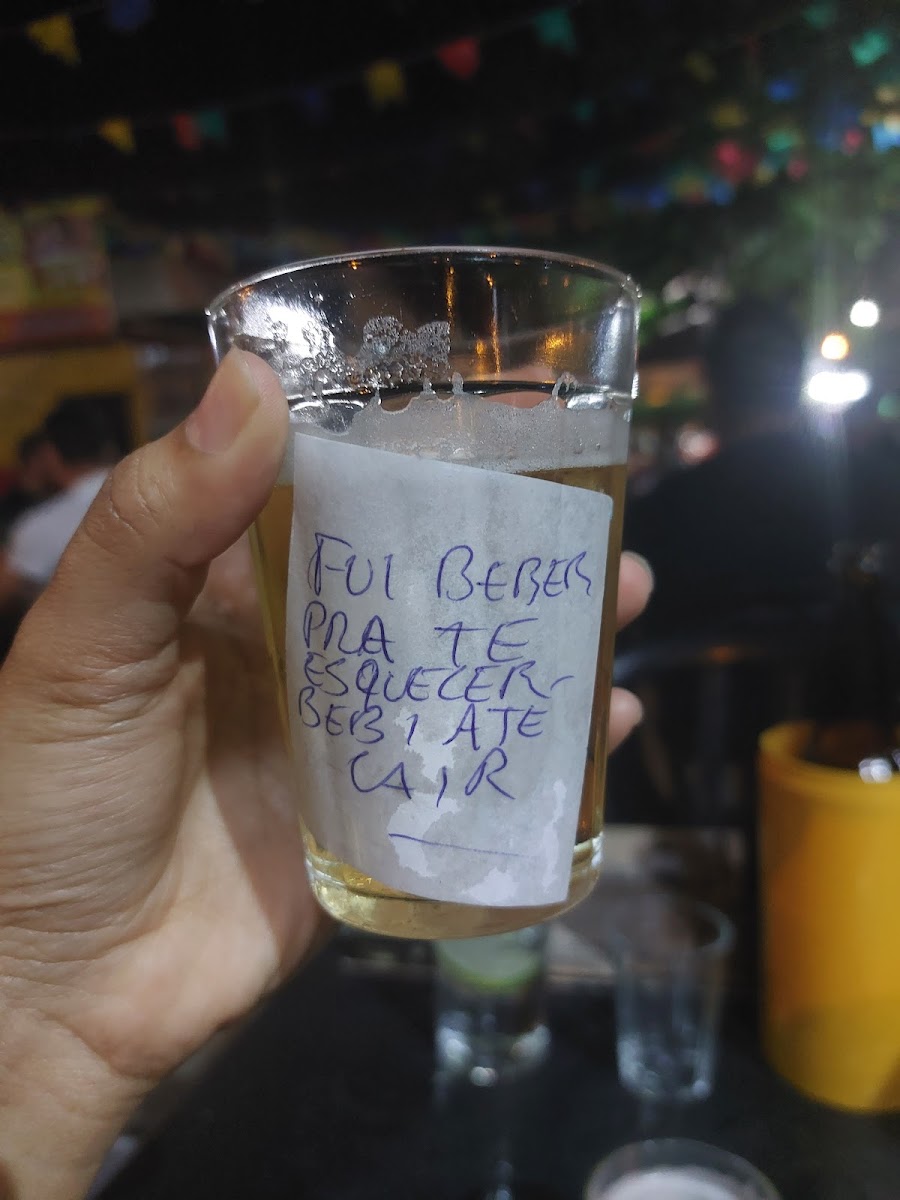 FUI BEBER
PRA TE
ESQUECER-
BEBI ATE
CAIR